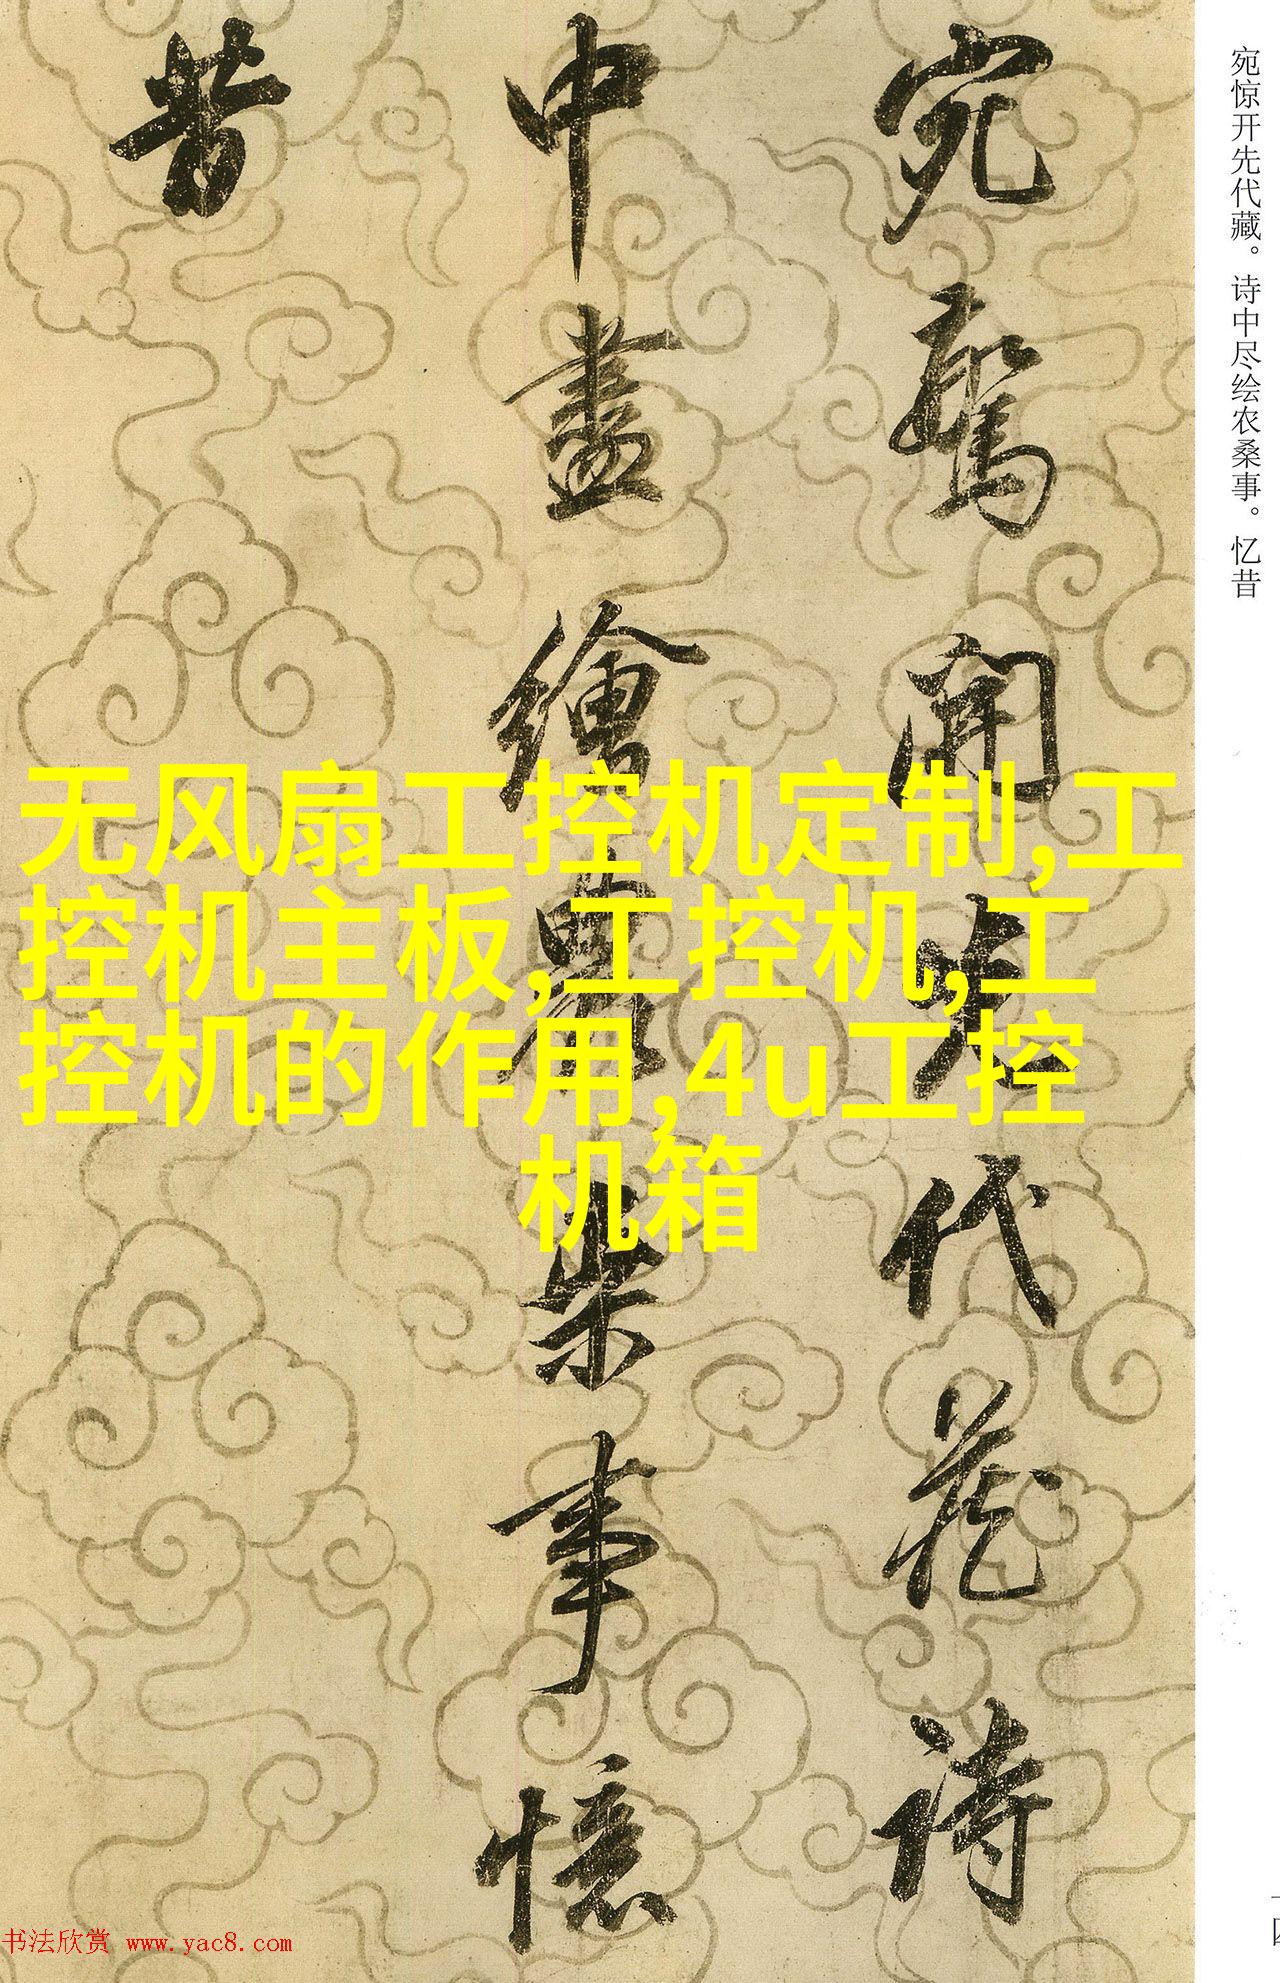 宛驚開先代藏詩
中盡繪農桑事憶
昔
宛惊开先代藏。诗中尽绘农桑事。忆昔
无风扇工控机定制,工
控机主板,工控机,工
控机的作用,4u工控
机箱
书法欣赏 www.yac8.com